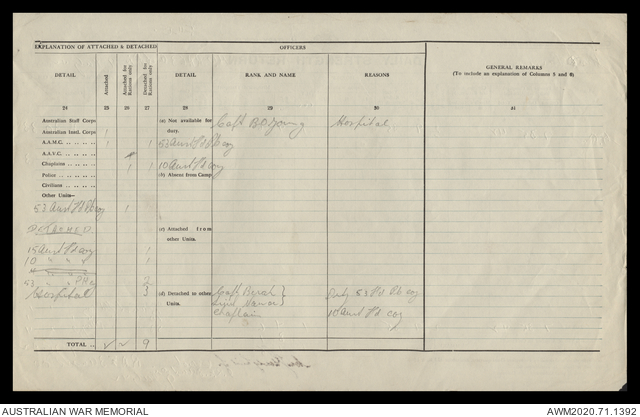 EXPLANATION OF ATTACHED & DETACHED OFFICERS
DETAIL Attached Attached for Rations only Detached for Rations only DETAIL RANK AND NAME REASONS GENERAL REMARKS
(To include an explanation of Columns 5 and 6)
24 25 26 27 28 29 30 31
Australian Staff Corps (a) Not available for duty. Capt B O Young Hospital
Australian Instl. Corps 1
A.A.M.C. 1 1 53 Aust Fd Pk Coy
A.A.V.C.
Chaplains 1 1 10 Aust Fd Coy
Police (b) Absent from Camp
Civilians
Other Units—
53 Aust Fd Pk Coy 1
(c) Attached from other Units.
15 Aust Fd Coy 1
10 " " " 1
53 " " 2
Hospital 3 (d) Detached to other Units. Capt } Duty 53 Fd Pk Coy
Lieut }
Chaplain 10 Aust Fd Coy
TOTAL ✓ ✓ 9
AUSTRALIAN WAR MEMORIAL AWM2020.71.1392